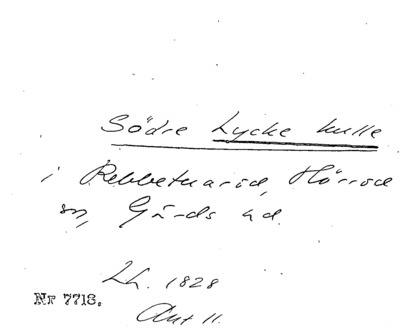 Södre Lycke kulle
i Rebbetuaröd, Hörröd
sn, Gärds hd.
LL. 1828
Nr 7718.
Akt 11.